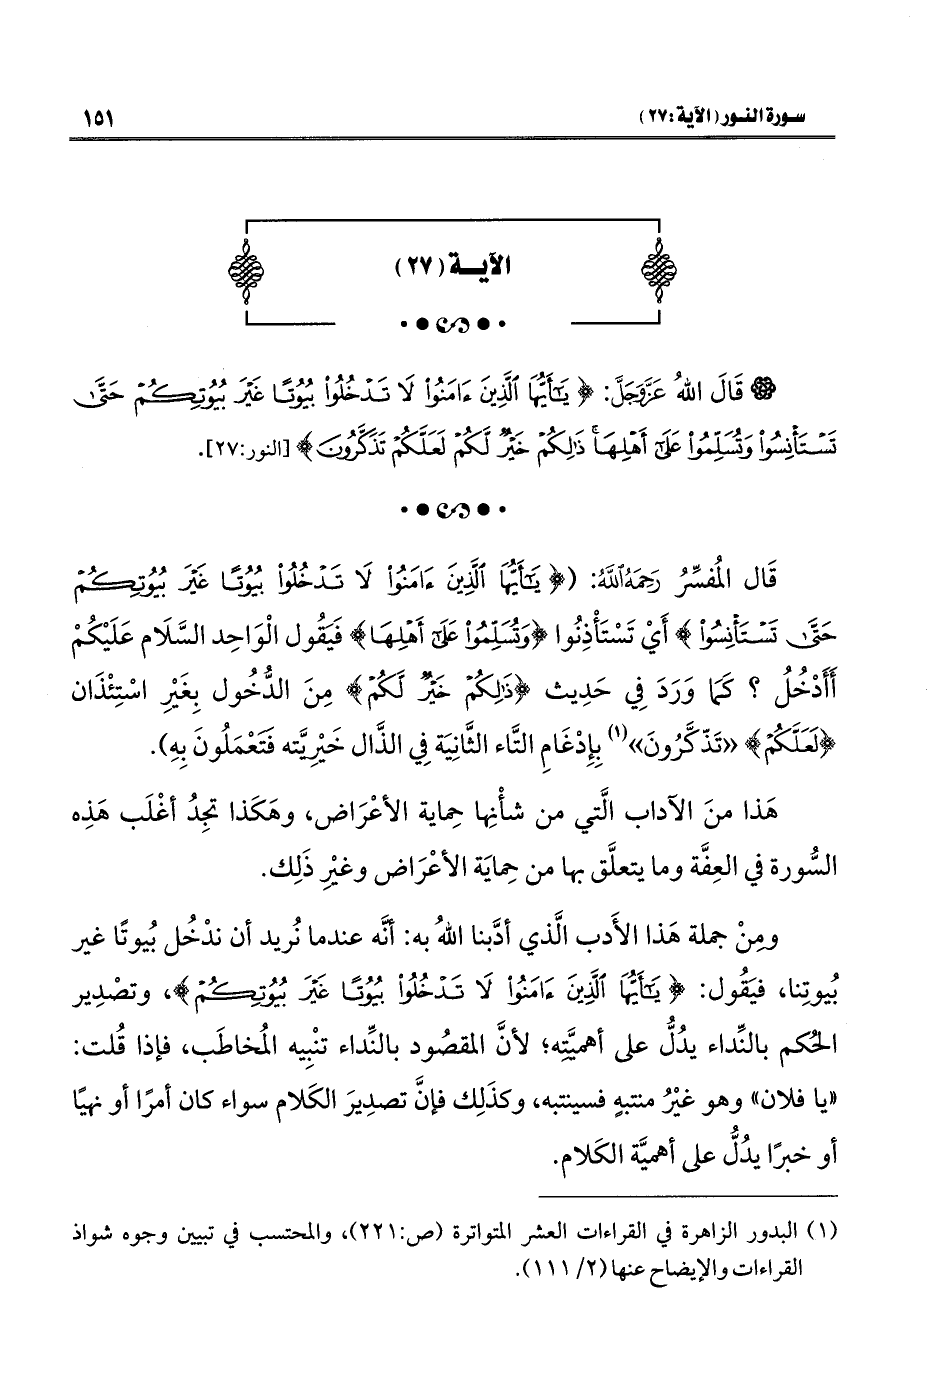 سورة النور (الآية: ٢٧)
١٥١
الآية (٢٧)
قَالَ اللهُ عَزَّوَجَلَّ: ﴿ يَٰٓأَيُّهَا ٱلَّذِينَ ءَامَنُوا۟ لَا تَدْخُلُوا۟ بُيُوتًا غَيْرَ بُيُوتِكُمْ حَتَّىٰ
تَسْتَأْنِسُوا۟ وَتُسَلِّمُوا۟ عَلَىٰٓ أَهْلِهَا ۚ ذَٰلِكُمْ خَيْرٌ لَّكُمْ لَعَلَّكُمْ تَذَكَّرُونَ ﴾ [النور: ٢٧].
قَال المُفسِّرُ رَحِمَهُ اللَّهُ: (﴿ يَٰٓأَيُّهَا ٱلَّذِينَ ءَامَنُوا۟ لَا تَدْخُلُوا۟ بُيُوتًا غَيْرَ بُيُوتِكُمْ
حَتَّىٰ تَسْتَأْنِسُوا۟ ﴾ أَيْ تَسْتَأْذِنُوا ﴿وَتُسَلِّمُوا۟ عَلَىٰٓ أَهْلِهَا﴾ فَيَقُول الْوَاحِد السَّلَام عَلَيْكُمْ
أَأَدْخُلُ ؟ كَمَا وَرَدَ فِي حَدِيث ﴿ذَٰلِكُمْ خَيْرٌ لَّكُمْ﴾ مِنَ الدُّخُول بِغَيْرِ اسْتِئْذَان
﴿لَعَلَّكُمْ﴾ «تَذَّكَّرُونَ»(١) بِإِدْغَامِ التَّاء الثَّانِيَة فِي الذَّال خَيْرِيَّته فَتَعْمَلُونَ بِهِ).
هَذا منَ الآداب الَّتي من شأْنِها حِماية الأعْرَاض، وهَكَذا تَجِدُ أغْلَب هَذِه
السُّورة في العِفَّة وما يتعلَّق بها من حِمايَة الأعْرَاض وغيْرِ ذَلِك.
ومِنْ جملة هَذا الأَدب الَّذي أدَّبنا اللهُ به: أنَّه عندما نُريد أن ندْخُل بُيوتًا غير
بُيوتِنا، فيَقُول: ﴿ يَٰٓأَيُّهَا ٱلَّذِينَ ءَامَنُوا۟ لَا تَدْخُلُوا۟ بُيُوتًا غَيْرَ بُيُوتِكُمْ﴾، وتصْدِير
الحُكم بالنِّداء يدُلُّ على أهميَّتِه؛ لأنَّ المقصُود بالنِّداء تنْبِيه المُخاطَب، فإذا قُلت:
«يا فلان» وهو غيْرُ منتبهٍ فسينتبه، وكَذلِك فإنَّ تصدِيرَ الكَلام سواء كان أمرًا أو نهيًا
أو خبرًا يدُلُّ على أهميَّة الكَلام.
(١) البدور الزاهرة في القراءات العشر المتواترة (ص: ٢٢١)، والمحتسب في تبيين وجوه شواذ
القراءات والإيضاح عنها (٢/ ١١١).